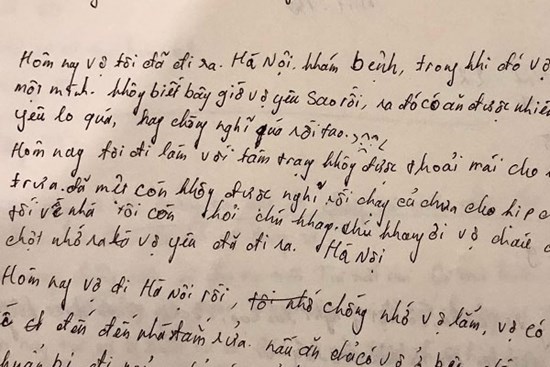 Hôm nay vợ tôi đã đi ra. Hà Nội. khám bệnh, trong khi đó vợ
một mình. không biết bây giờ vợ yêu sao rồi, ra đó có ăn được nhiên
yêu lo quá, hay chồng nghĩ quá rồi tao.
Hôm nay tôi đi làm với tâm trạng không được thoải mái cho
trưa. đã mệt còn không được nghỉ rồi chạy cả chưa cho kịp
tối về nhà tôi còn hỏi chú khay. chú khay ơi vợ cháu
chợt nhớ ra là vợ yêu đã đi ra. Hà Nội
Hôm nay vợ đi Hà Nội rồi, tôi nhớ chồng nhớ vợ lắm, vợ có
đến đến nhà tắm rửa. nấu ăn chả có vợ ở bên
bị đi